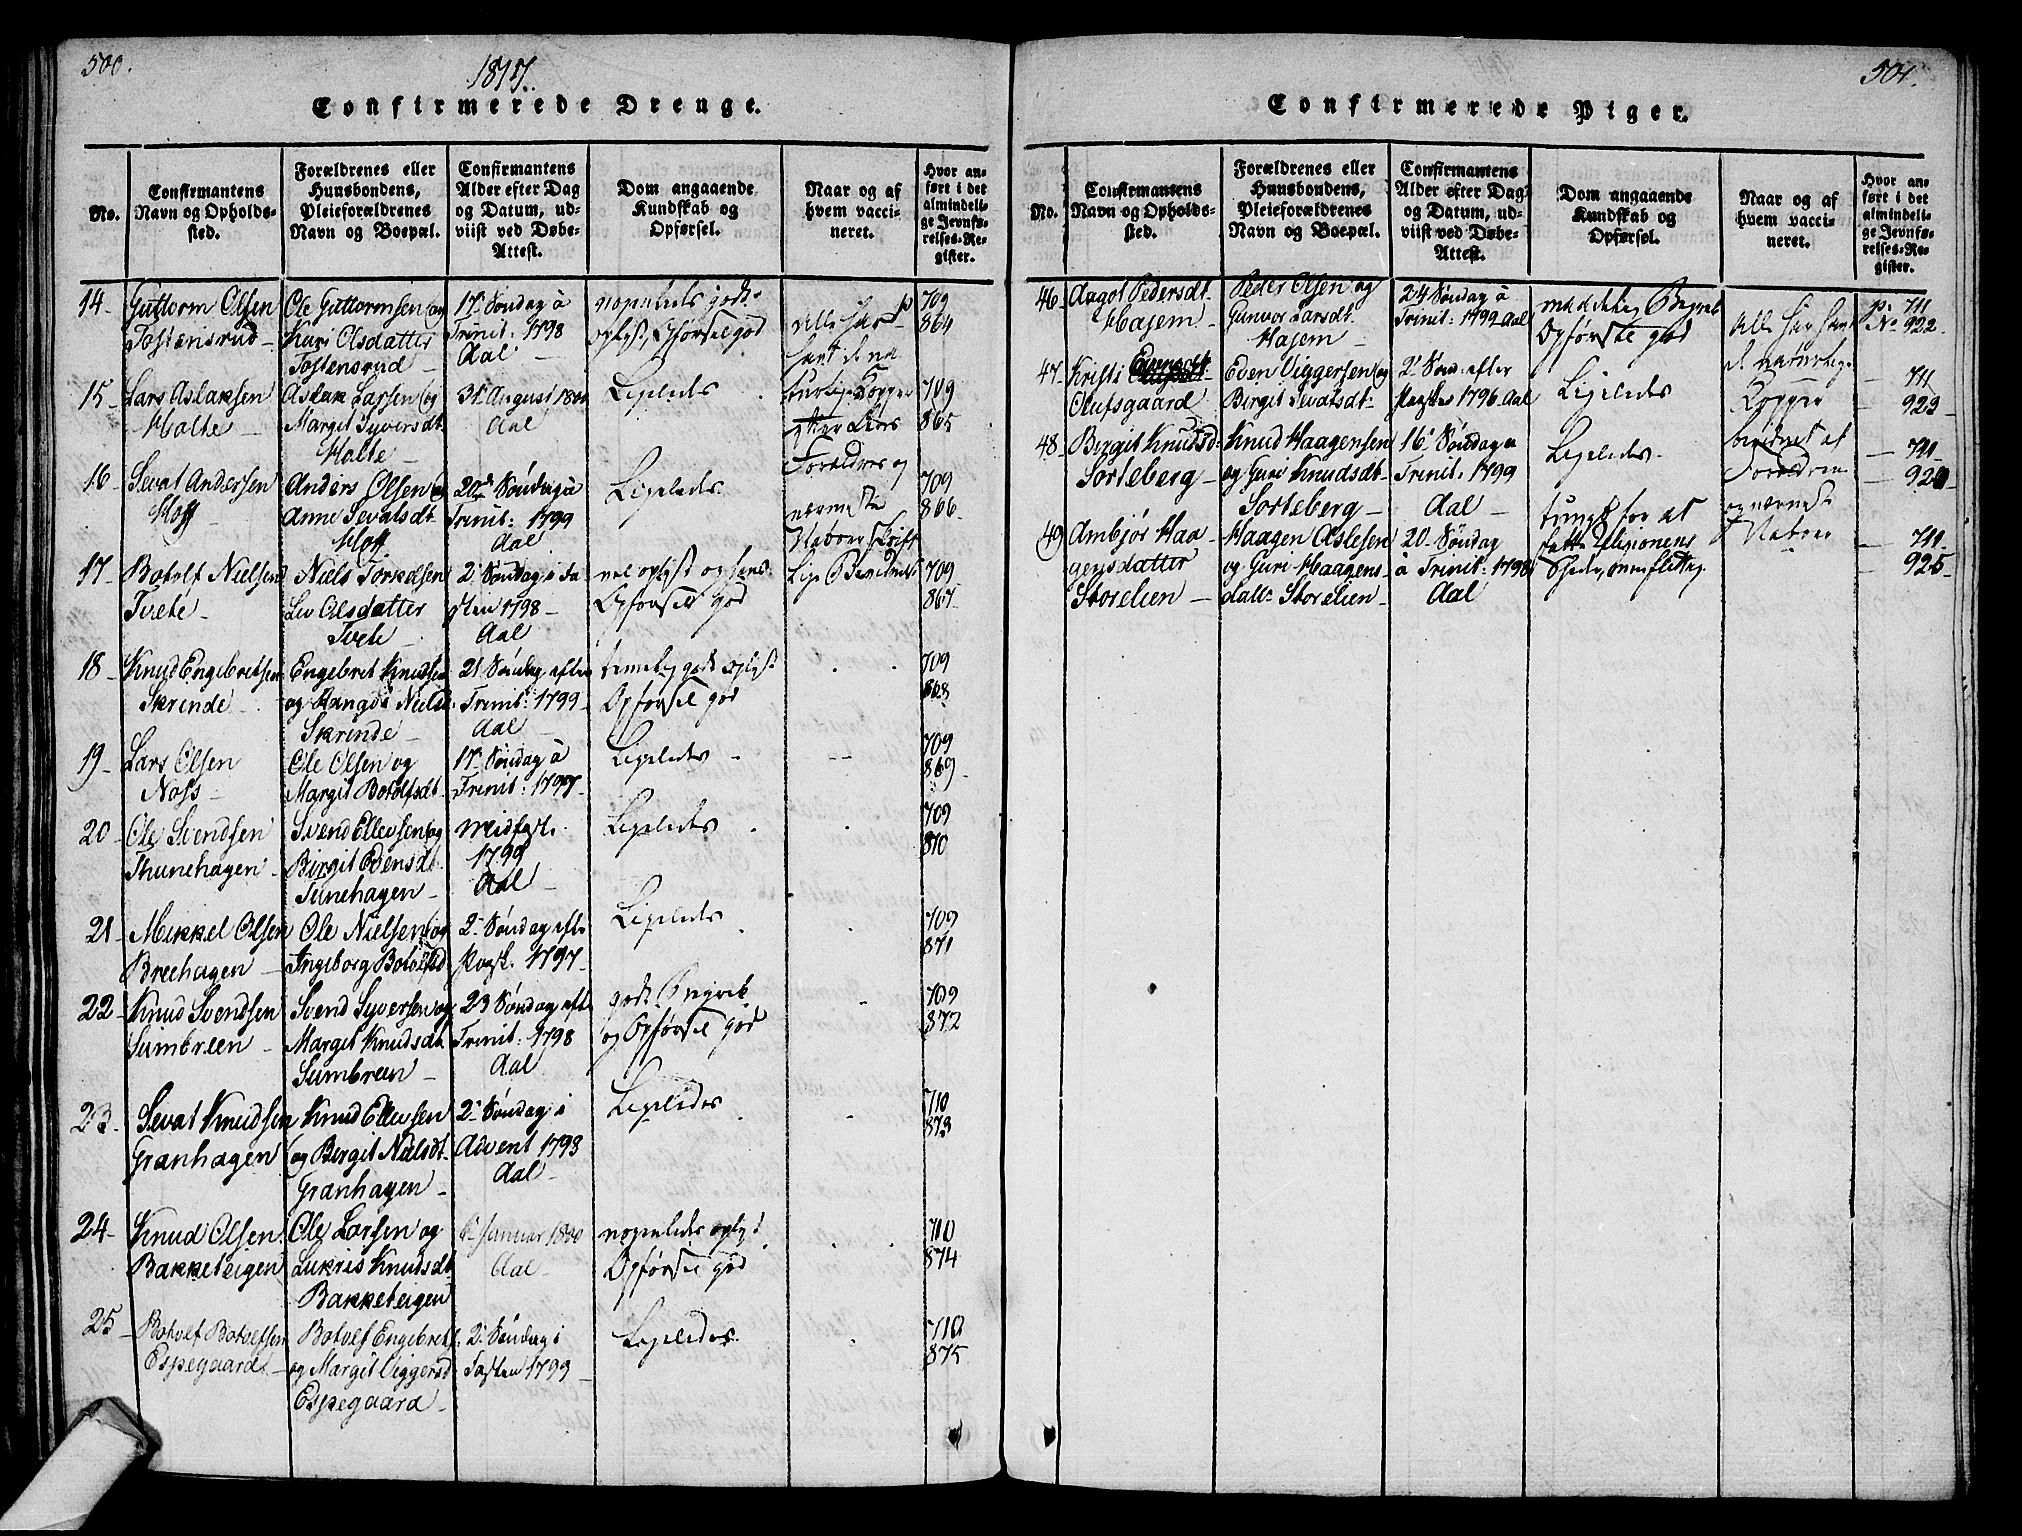 500.
1817.
Confirmerede Drenge.
No.
Confirmantens
Navn og Opholds-
sted.
Forældrenes eller
Huusbondens,
Pleieforældrenes
Navn og Boepæl.
Confirmantens
Alder efter Dag
og Datum, ud-
viist ved Døbe-
Attest.
Dom angaaende
Kundskab og
Opførsel.
Naar og af
hvem vacci-
neret.
Hvor an-
ført i det
almindeli-
ge Jevnfø-
relses-Re-
gister.
14 Guttorm Olsen
Tostensrud
Ole Guttormsen og
Kari Olsdatter
Tostensrud
17. Søndag à
Trinit: 1798
Aal
nogenleds godt
oplyst, Opførsel god
Alle har
havt de na
turlige Kopper
efter
Forældres og
nærmeste
Naboer
709
864
15 Lars Aslaksen
Holte
Aslak Larsen og
Margit Syversdt.
Holte
31. August 1800
Aal
Ligeledes
709
865
16 Sevat Andersen
Hoff
Anders Olsen og
Anne Sevatsdt.
Hoff
20de Søndag à
Trinit: 1799
Aal
Ligeledes
709
866
17 Botolf Nielsen
Tvete
Niels
Liv Olsdatter
Tvete
2. Søndag i Fa
sten 1798
Aal
vel oplyst og hans
Opførsel god
709
867
18 Knud Engebretsen
Skrinde
Engebret Knudsen
og Nielsd.
Skrinde
21. Søndag efter
Trinit: 1799
Aal
temelig godt oplyst
Opførsel god
709
868
19 Lars Olsen
Noss
Ole Olsen og
Margit Botolfsdt.
17. Søndag à
Trinit: 1797
Ligeledes
709
869
20 Ole Svendsen
Thunehagen
Svend Ellevsen og
Birgit Edensdt.
Tunehagen
Midfast.
1799
Aal
Ligeledes
709
870
21 Mikkel Olsen
Breehagen
Ole Nielsen og
Ingeborg Botolfsd
2. Søndag efter
Paask. 1797
Ligeledes
709
871
22 Knud Svendsen
Sumbreen
Svend Syversen og
Margit Knudsdt.
Sumbreen
23 Søndag efter
Trinit: 1798
Aal
godt Begreb
og Opførsel god
709
872
23 Sevat Knudsen
Granhagen
Knud Ellevsen
og Birgit Nielsdt.
Granhagen
2. Søndag i
Advent 1798
Aal
Ligeledes
710
873
24 Knud Olsen
Bakketeigen
Ole Larsen og
Lukris Knudsdt.
Bakketeigen
6. Januar 1800
Aal
nogenledes oplyst
Opførsel god
710
874
25 Botolf Botolfsen
Espegaard
Botolf Engebrets.
og Margit Viggersd
Espegaard
2. Søndag i
Fasten 1799
Ligeledes
710
875
501.
Confirmerede Piger.
No.
Confirmantens
Navn og Opholds-
sted.
Forældrenes eller
Huusbondens,
Pleieforældrenes
Navn og Boepæl.
Confirmantens
Alder efter Dag
og Datum, ud-
viist ved Døbe-
Attest.
Dom angaaende
Kundskab og
Opførsel.
Naar og af
hvem vacci-
neret.
Hvor an-
ført i det
almindeli-
ge Jevnfø-
relses-Re-
gister.
46 Aagot Pedersdt.
Hajem
Peder Olsen og
Gunvor Larsdt.
Hajem
24 Søndag à
Trinit: 1799 Aal
maadelig Begreb
Opførsel god
Alle har havt
de naturlige
Kopper
bevidnet af
Forældrene
og nærmeste
Naboer
p. 711
No 922
47 Kristi Edensdt.
Olufsgaard
Eden Viggersen og
Birgit Sevatsdt.
2. Sønd. efter
Paaske 1796 Aal
Ligeledes
711
923
48 Birgit Knudsd.
Sorteberg
Knud Haagensen
og Guri Knudsdt.
Sorteberg
16. Søndag à
Trinit: 1799
Aal
Ligeledes
711
924
49 Ambjør Haa-
gensdatter
Storelien
Haagen Aslesen
og Guri Haagens-
datt. Storelien
20. Søndag
à Trinit: 1798
Aal
tungt for at
fatte Religionens
711
925